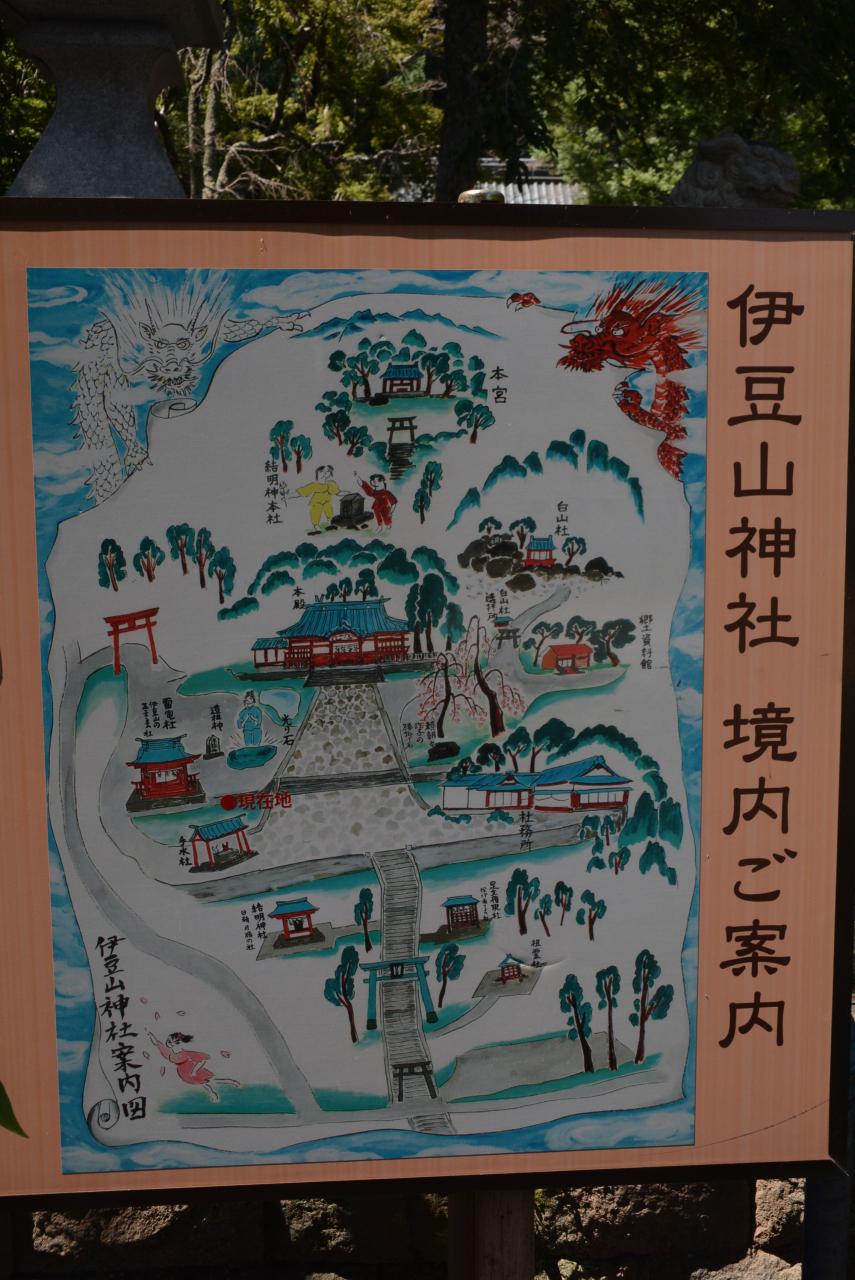 伊豆山神社 境内ご案内
本宮
結明神本社
白山社
本殿
白山社
遥拝所
郷土資料館
雷電社
道祖神
光り石
現在地
手水社
社務所
結明神社
足立権現社
祖霊社
伊豆山神社案内図